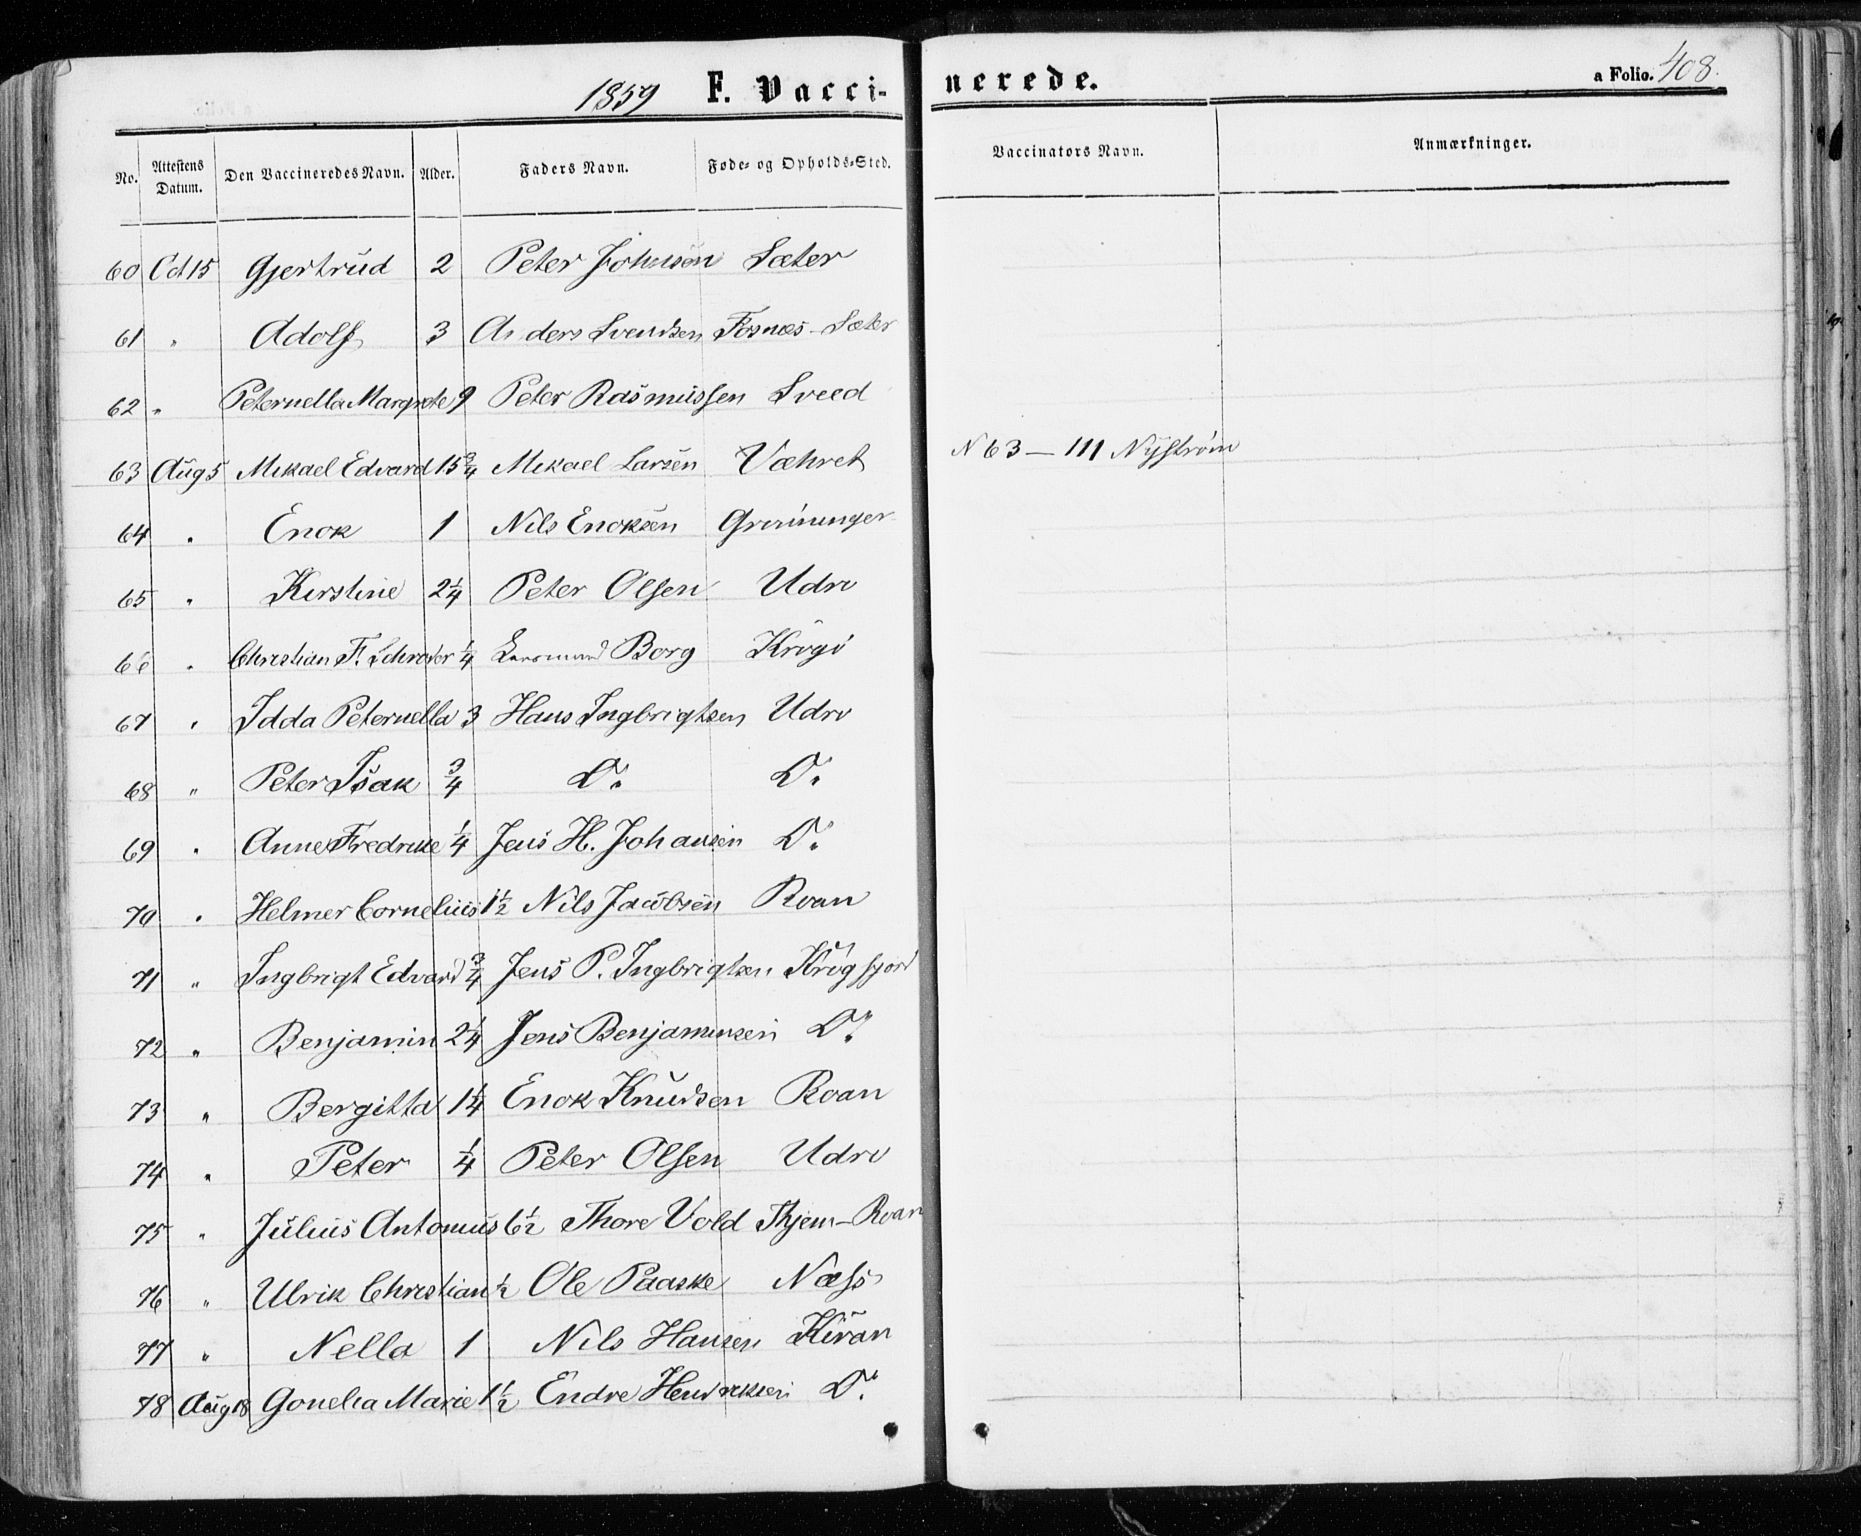 1859 F. Vacci- nerede. a Folio. 408.
No. Attestens Datum. Den Vaccineredes Navn. Alder. Faders Navn. Føde- og Opholds-Sted. Vaccinators Navn. Anmærkninger.
60 Oct 15 Gjertrud 2 Peter Johnsen Sæter
61 " Adolf 3 Anders Svendsen Fosnæs - Sæter
62 " Peternella Margrete 9 Peter Rasmussen Sveed
63 Aug 5 Mikael Edvard 15 3/4 Mikael Larsen Væhret N 63 — 111 Nyström
64 " Enok 1 Nils Enoksen
65 " Kirstine 2 1/4 Peter Olsen Udro
66 " Christian F. Schrøder 1/4 Borg Krogø
67 " Idda Peternella 3 Hans Ingbrigtsen Udro
68 " Peter Isak 3/4 Do. Do.
69 " Anne Fredrikke 1/4 Jens H. Johansen Do.
70 " Helmer Cornelius 1 1/2 Nils Jacobsen Roan
71 " Ingbrigt Edvard 3/4 Jens P. Ingbrigtsen Krogfjord
72 " Benjamin 2 1/4 Jens Benjaminsen Do.
73 " Bergitta 1 1/4 Enok Knudsen Roan
74 " Peter 1/4 Peter Olsen Udro
75 " Julius Antonius 6 1/2 Thore Vold Hjem - Roan
76 " Ulrik Christian 1/2 Ole Paaske Næss
77 " Nella 1 Nils Hansen Kiran
78 Aug 18 Gonelia Marie 1 1/2 Endre Hendriksen Do.